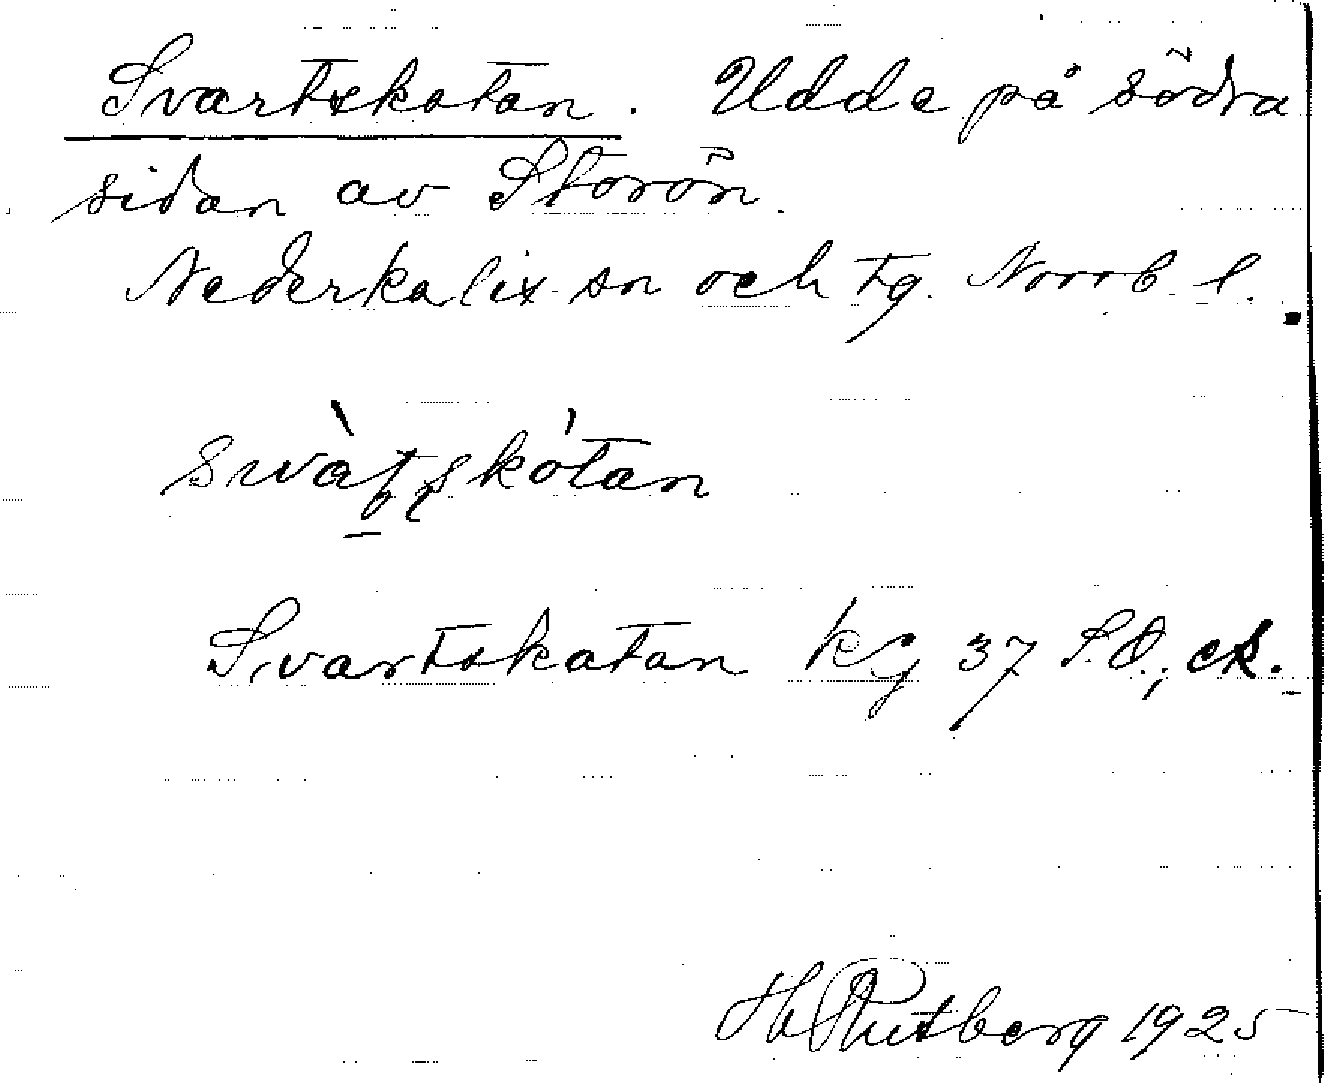 Svartskatan. Udde på södra
sidan av Storön.
Nederkalix sn och tg. Norrb. l.
Svartskatan kg 37 S.O., ek.
H. Rutberg 1925